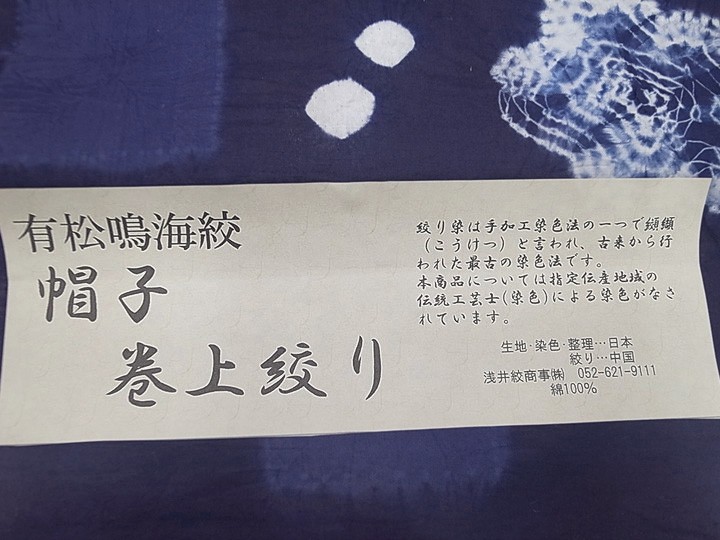 有松鳴海絞
帽子
巻上絞り
絞り染は手加工染色法の一つで纐纈
(こうけつ)と言われ、古来から行
われた最古の染色法です。
本商品については指定伝産地域の
伝統工芸士(染色)による染色がなさ
れています。
生地・染色・整理…日本
絞り…中国
浅井絞商事㈱ 052-621-9111
綿100%